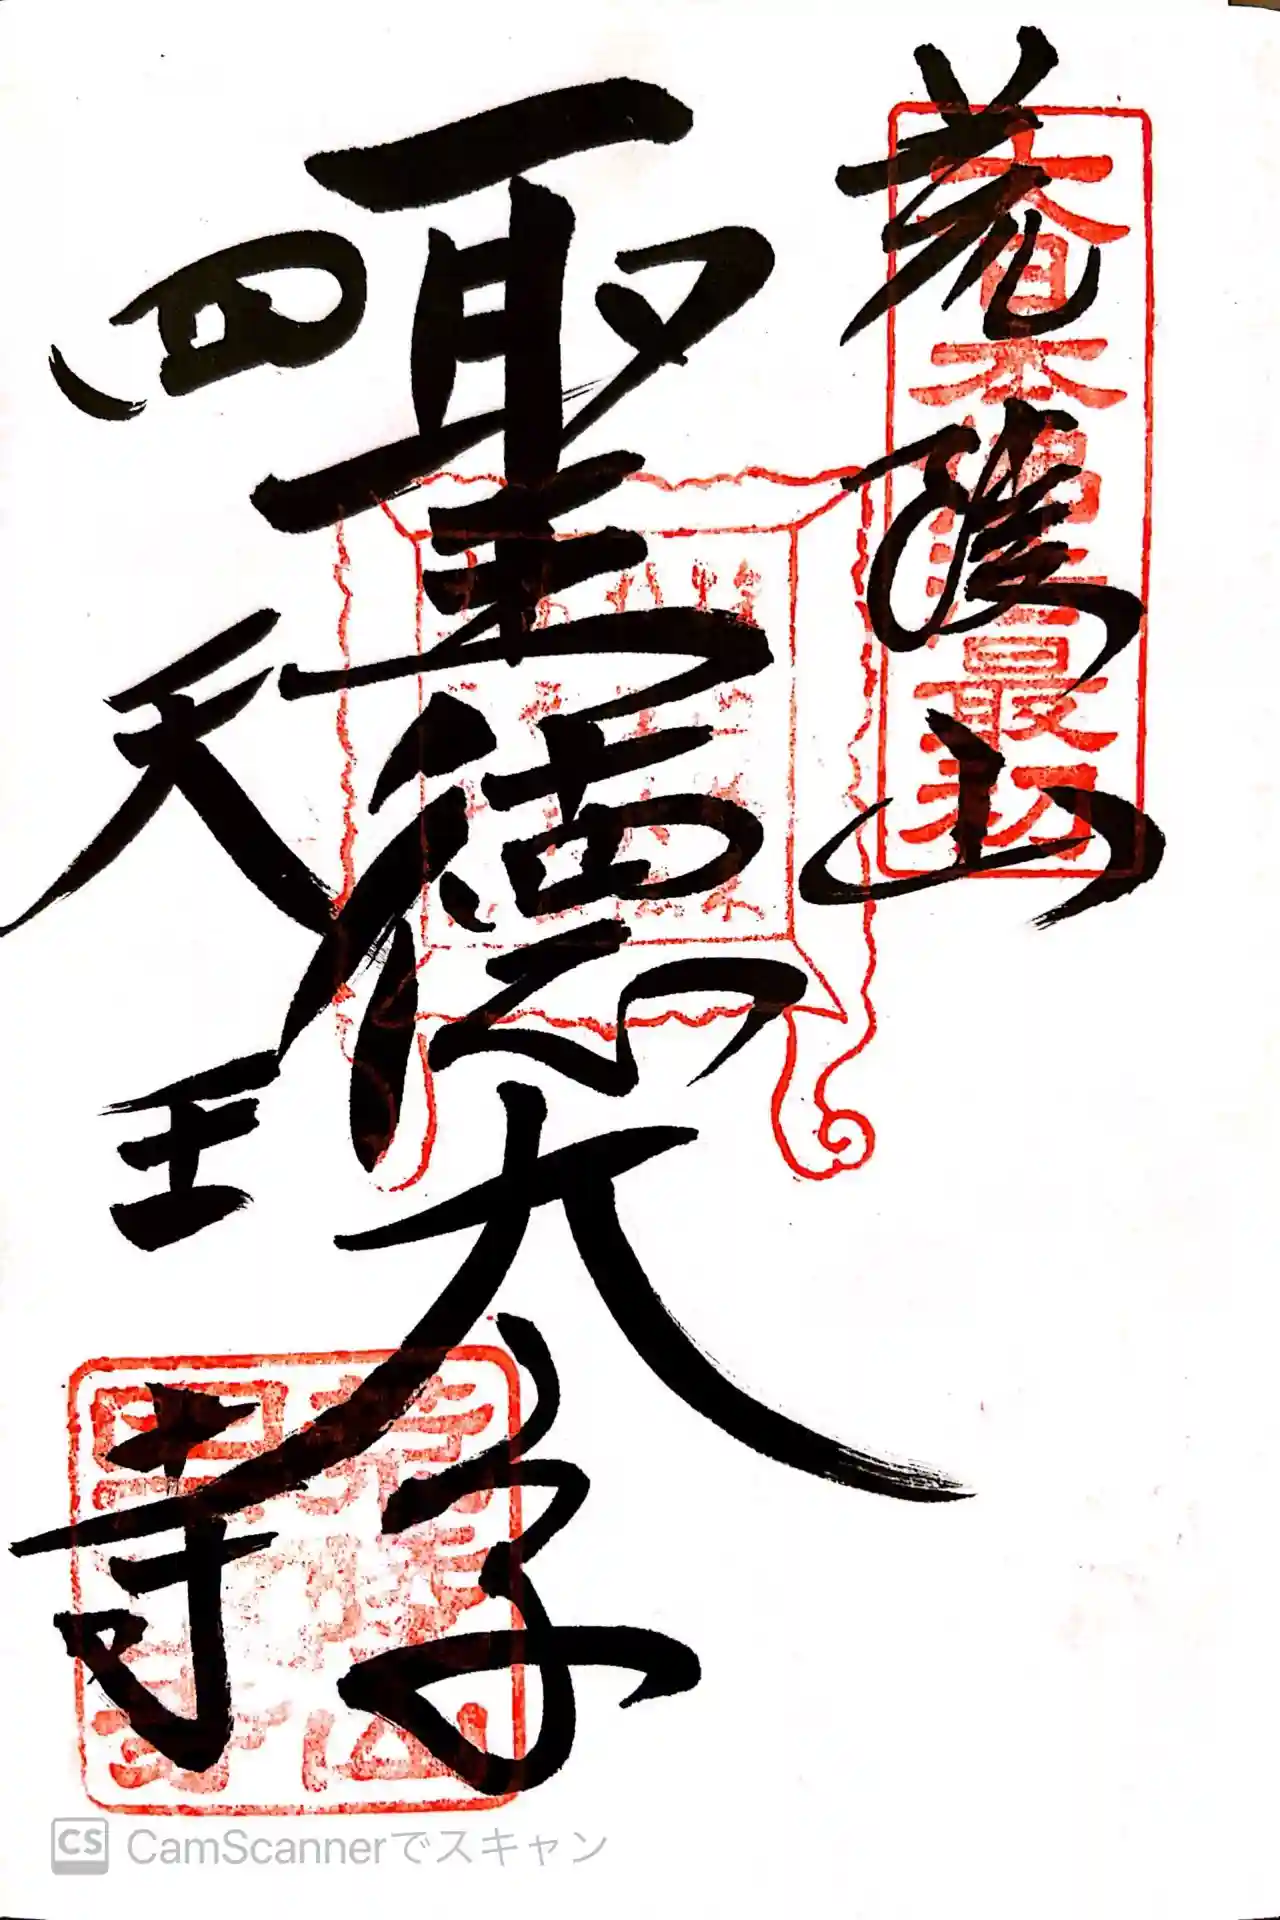 荒陵山
大日本佛法最初
聖徳太子
四天王寺
荒陵山
四天王寺
CS CamScannerでスキャン